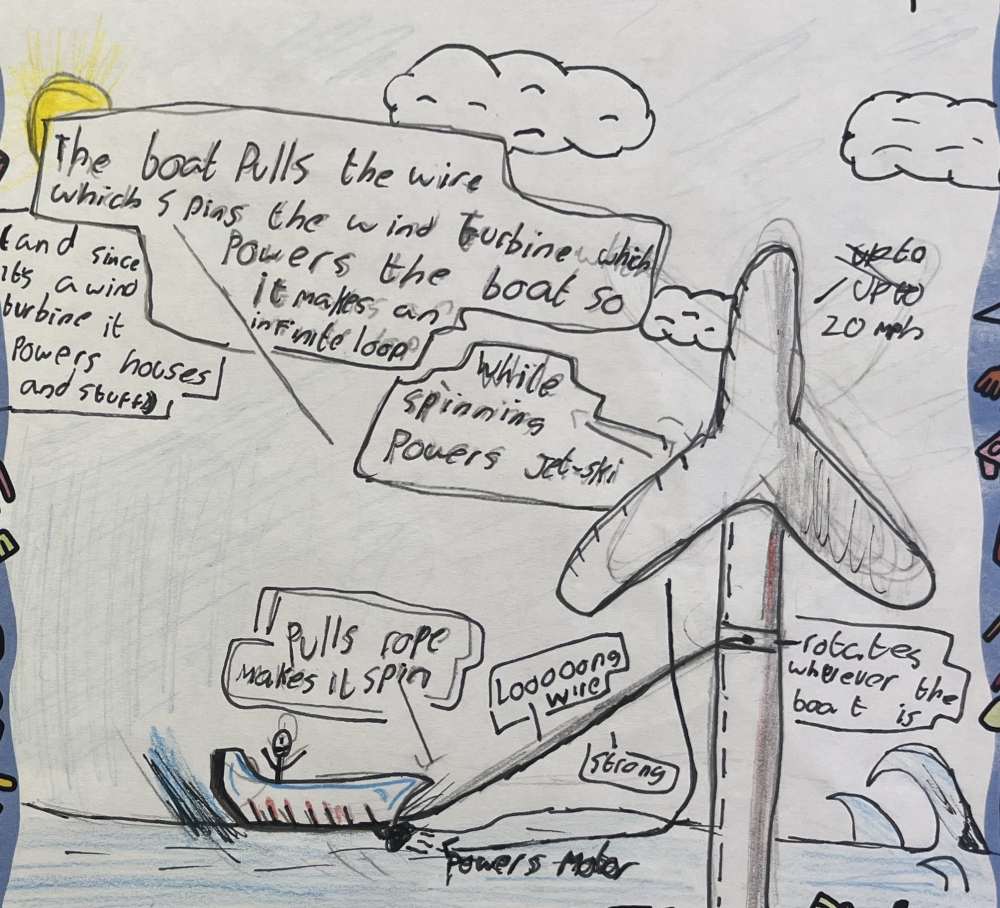 The boat Pulls the wire
which spins the wind turbine which
Powers the boat so
it makes an
infinite loop
(and since
it's a wind
turbine it
Powers houses
and stuff)
UP to
UP to
20 mph
While
spinning
Powers Jet-ski
Pulls rope
makes it spin
Looooong
wire
strong
rotates
wherever the
boat is
Powers Motor